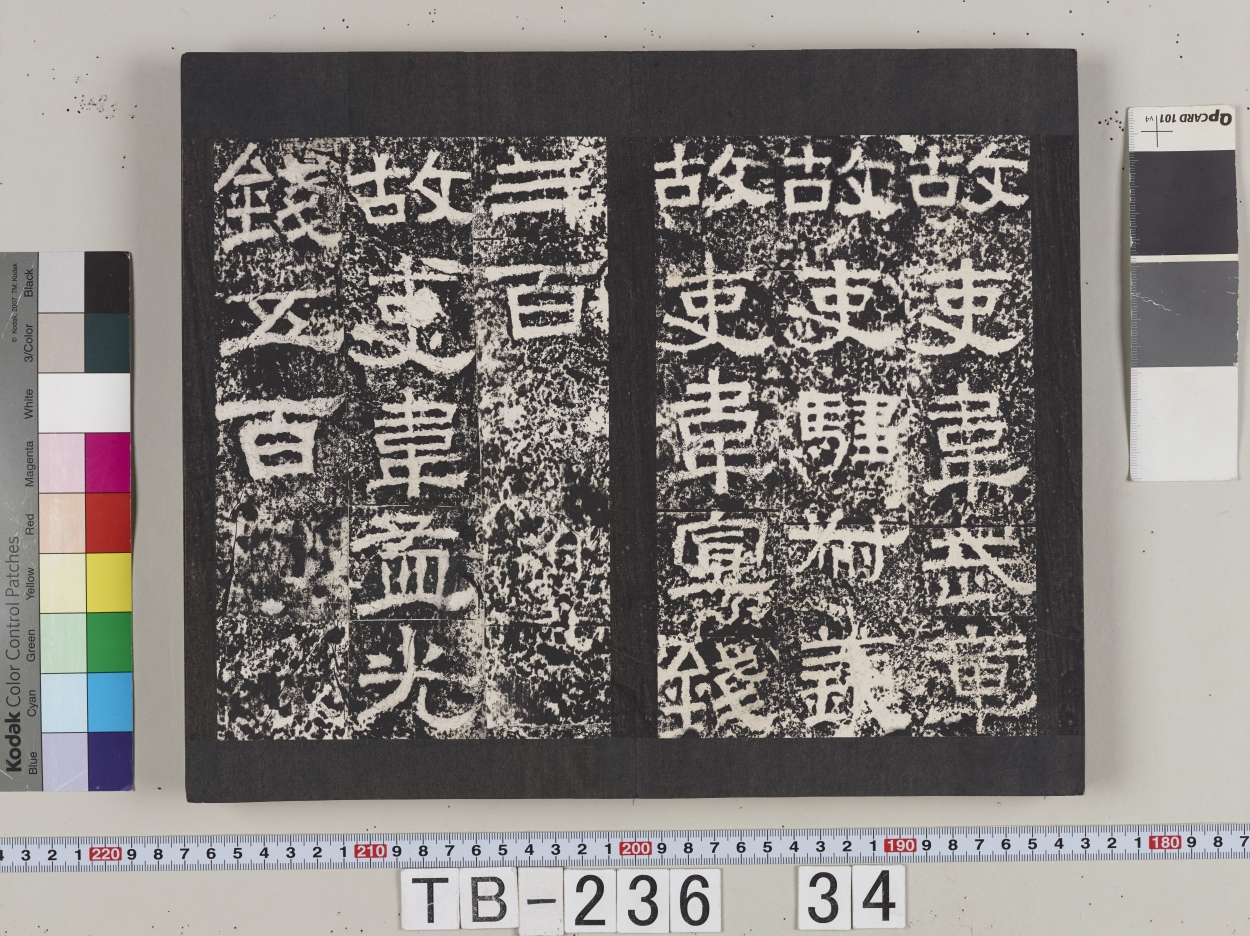 故吏韋武章
故吏騶叔義
故吏韋宣錢
三百
故吏韋孟光
錢五百
Kodak Color Control Patches
© Kodak, 2007 TM: Kodak
Blue Cyan Green Yellow Red Magenta White 3/Color Black
QPCARD 101 v4
4 3 2 1 220 9 8 7 6 5 4 3 2 1 210 9 8 7 6 5 4 3 2 1 200 9 8 7 6 5 4 3 2 1 190 9 8 7 6 5 4 3 2 1 180 9 8 7
TB-236 34